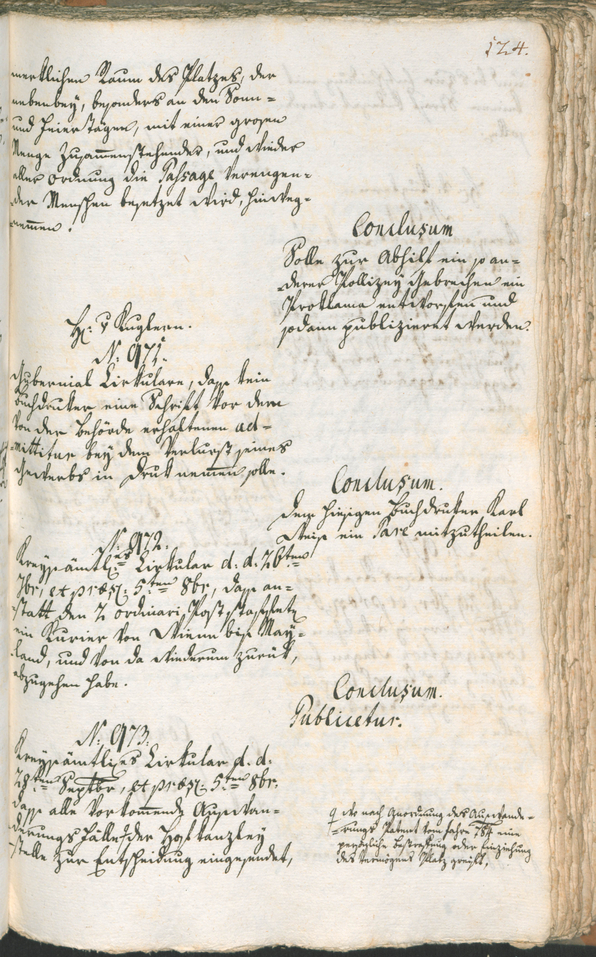 124.
merklichen Raum des Platzes, der
nebenbey, besonders an den Sonn-
und Feiertägen, mit einer grosen
Menge Zusammenstehender, und wieder
aller Ordnung die Passage verengen-
der Menschen besetzet wird, hinweg-
nemmen.
Conclusum
Solle zur Abhilf ein so an-
derer Pollizey Gebrechen ein
Proklama entworfen und
sodann publizieret werden.
Kuglern.
N: 971.
Gubernial Cirkulare, dass kein
Buchdruker eine Schrift vor dem
von der Behörde erhaltenen ad-
mittitur bey dem Verlurst seines
Gewerbs in Druk nemmen solle.
Conclusum.
Dem hiesigen Buchdruker Karl
Weiss ein Pare mitzutheilen.
N: 972.
Kreysämtliches Cirkular d. d. 26ten
7br, et praes: 5ten 8br, dass an-
statt den 2 ordinari Post
ein Kurier von Wienn bis May-
land, und von da wiederum zurük,
abzugehen habe.
Conclusum.
Publicetur.
N: 973.
Kreysämtliches Cirkular d. d.
28ten Septbr, et praes: 5ten 8br.
dass alle vorkommende Auswan-
derungs Fälle der Hofkanzley
stelle zur Entscheidung eingesendet,
wo nach Anordnung des Auswande-
rungs Patent vom Jahre 784 eine
persöhliche Bestrafung oder Einziehung
des Vermögens Platz greift,